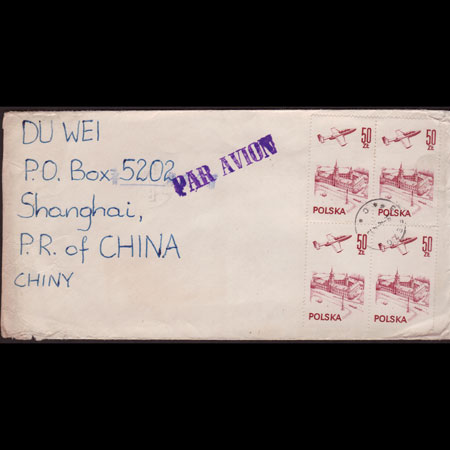 DU WEI
P.O. Box 5202
Shanghai,
P.R. of CHINA
CHINY
PAR AVION
50 ZŁ
POLSKA
50 ZŁ
POLSKA
50 ZŁ
POLSKA
50 ZŁ
POLSKA